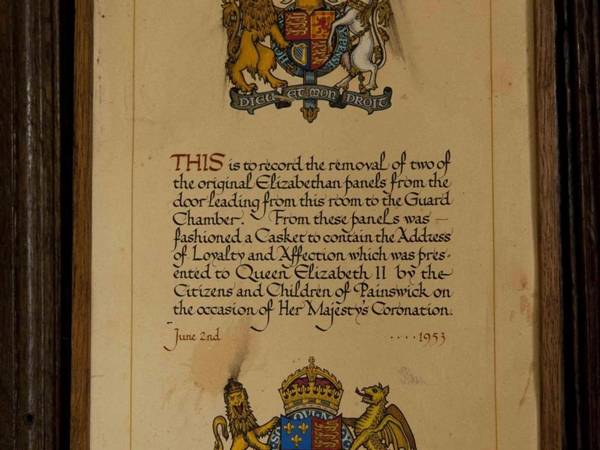 DIEU ET MON DROIT
THIS is to record the removal of two of
the original Elizabethan panels from the
door leading from this room to the Guard
Chamber. From these panels was
fashioned a Casket to contain the Address
of Loyalty and Affection which was pres-
ented to Queen Elizabeth II by the
Citizens and Children of Painswick on
the occasion of Her Majesty's Coronation.
June 2nd ....1953